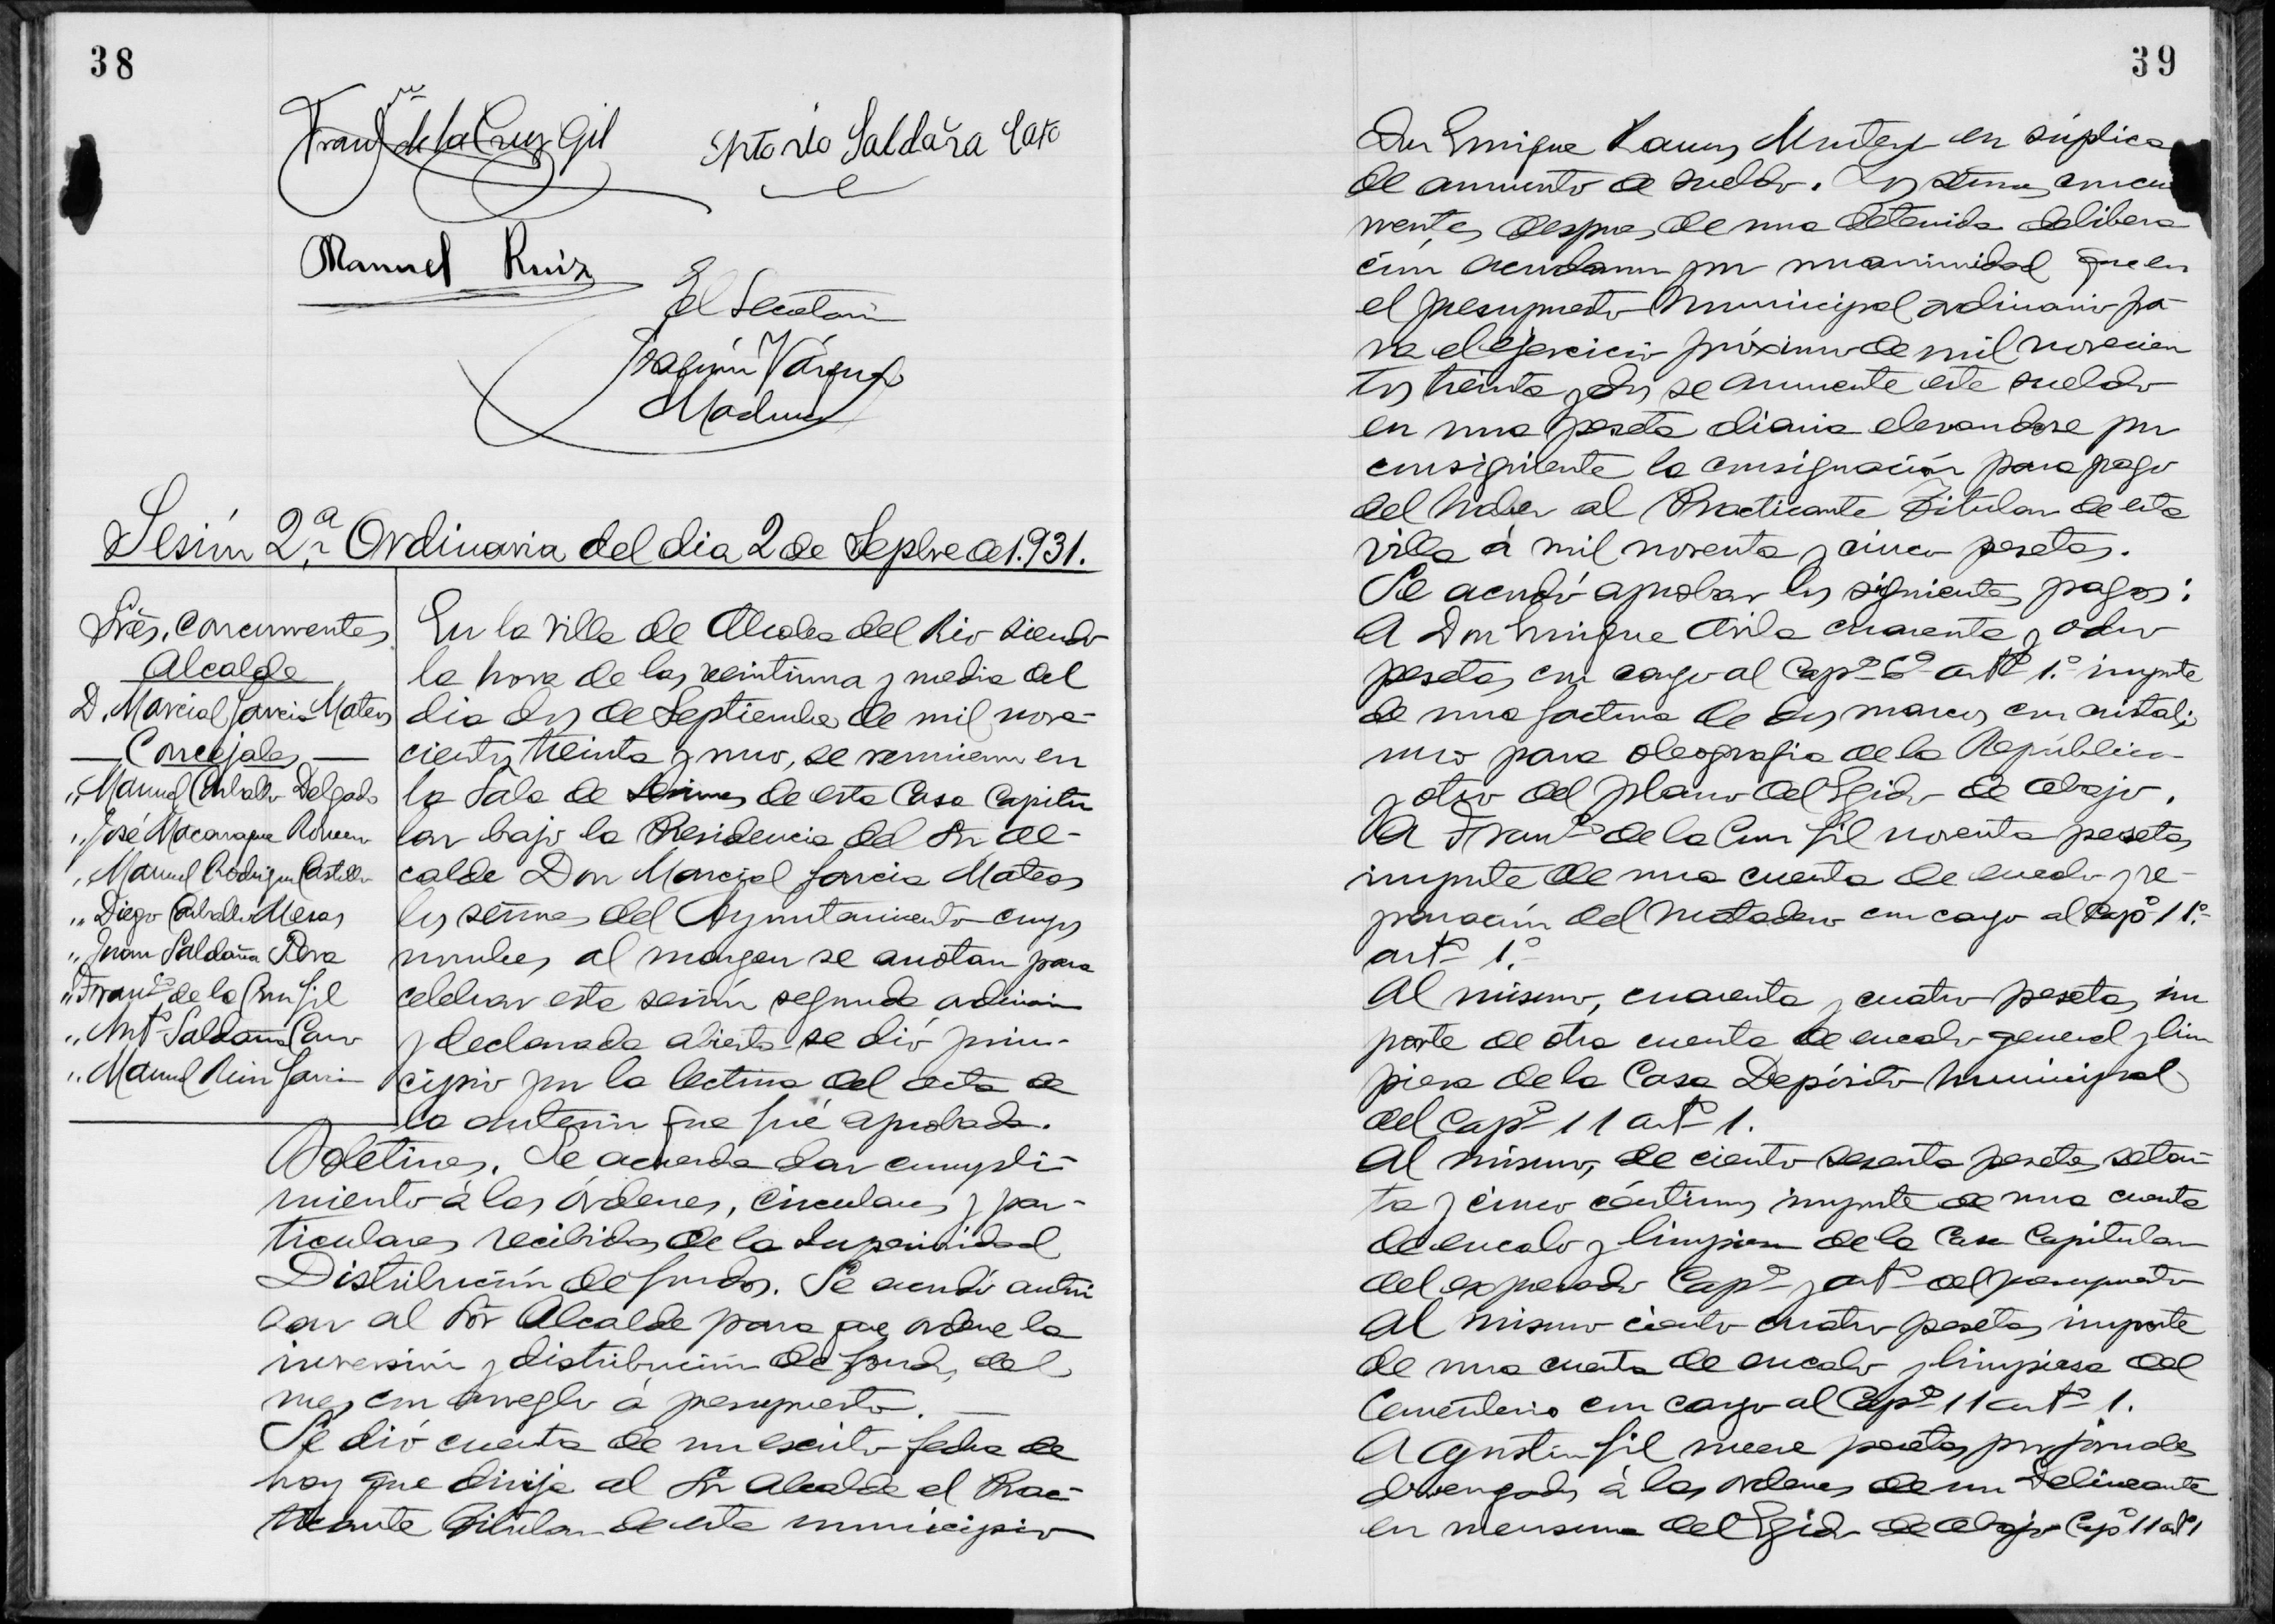 38
Franco de la Cruz Gil
Antonio Saldaña Caro
Manuel Ruiz
El Secretario
Joaquín Márquez
Sesión 2ª Ordinaria del dia 2 de Sepbre de 1.931.
Sres. Concurrentes
Alcalde
D. Marcial Garcia Mateos
Concejales
" Manuel Carballo Delgado
" José Macarague Romero
" Manuel Rodriguez Castillo
" Diego Carballo Mesas
" Juan Saldaña
" Franco de la Cruz Gil
" Anto Saldaña Caro
" Manuel Ruiz Garcia
En la Villa de Alcolea del Rio siendo
la hora de las veintiuna y media del
dia dos de Septiembre de mil nove-
cientos treinta y uno, se reunieron en
la Sala de Sesiones de esta Casa Capitu
lar bajo la Presidencia del Sr. Al-
calde Don Marcial Garcia Mateos
los señores del Ayuntamiento cuyos
nombres al margen se anotan para
celebrar esta sesión segunda ordinaria
y declarada abierta se dió prin-
cipio por la lectura del acta de
la anterior que fué aprobada.
Boletines. Se acuerda dar cumpli-
miento á las órdenes, circulares y par-
ticulares recibidas de la Superioridad
Distribución de fondos. Se acordó autori
zar al Sor Alcalde para que ordene la
inversión y distribución de fondos del
mes con arreglo á presupuesto.
Se dió cuenta de un escrito fecha de
hoy que dirije al Sr Alcalde el Prac-
ticante Titular de este municipio
39
Don Enrique Ramos Montes en súplica
de aumento de sueldo. Los señores concu
rrentes despues de una detenida delibera
ción acordaron por unanimidad que en
el presupuesto municipal ordinario pa-
ra el ejercicio próximo de mil novecien
tos treinta y dos se aumente este sueldo
en una peseta diaria elevandose por
consiguiente la consignación para pago
del haber al Practicante Titular de esta
villa á mil noventa y cinco pesetas.
Se acordó aprobar los siguientes pagos:
A Don Enrique Avila cuarenta y ocho
pesetas con cargo al Capº 6º artº 1.º importe
de una factura de dos marcos con cristales
uno para oleografia de la República
y otro del plano del Egido de abajo.
A Franco de la Cruz Gil noventa pesetas
importe de una cuenta de encalo y re-
paración del Matadero con cargo al Capº 11.º
artº 1.º
Al mismo, cuarenta y cuatro pesetas im
porte de otra cuenta de encalo general y lim
pieza de la Casa Depósito municipal
del Capº 11 artº 1.
Al mismo, de ciento sesenta pesetas seten-
ta y cinco céntimos importe de una cuenta
de encalo y limpieza de la Casa Capitular
del expresado Capº y artº del presupuesto
Al mismo ciento cuatro pesetas importe
de una cuenta de encalo y limpieza del
Cementerio con cargo al Capº 11 artº 1.
A Agustin Gil nueve pesetas por jornales
devengados á las ordenes de un Delineante
en mensura del Egido de abajo Capº 11 artº 1